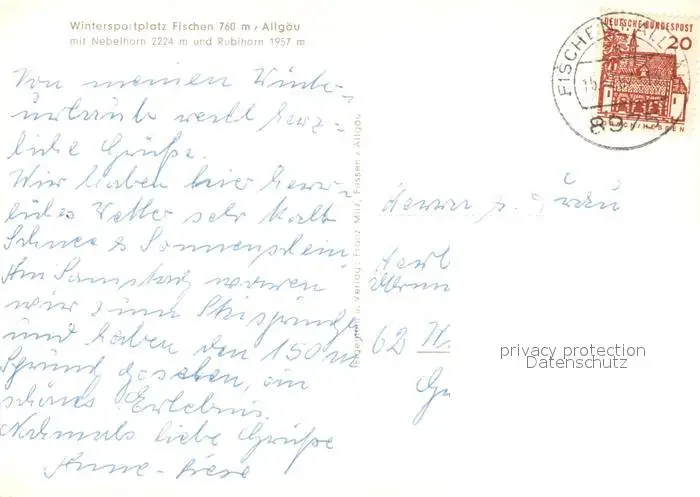 Wintersportplatz Fischen 760 m / Allgäu
mit Nebelhorn 2224 m und Rubihorn 1957 m
Von meinen Winter-
urlaub recht herz-
liche Grüße.
Wir haben hier herr-
liches Wetter sehr kalt
Schnee & Sonnenschein
Am Samstag waren
wir zum Skispringen
und haben den 150 m
Sprung gesehen, ein
schönes Erlebnis.
Nochmals liebe Grüße
Anne-Liese
Eigentum u. Verlag: Franz Milz, Füssen / Allgäu
DEUTSCHE BUNDESPOST
20
FISCHEN
8975
Herrn u. Frau
62 W.
privacy protection
Datenschutz